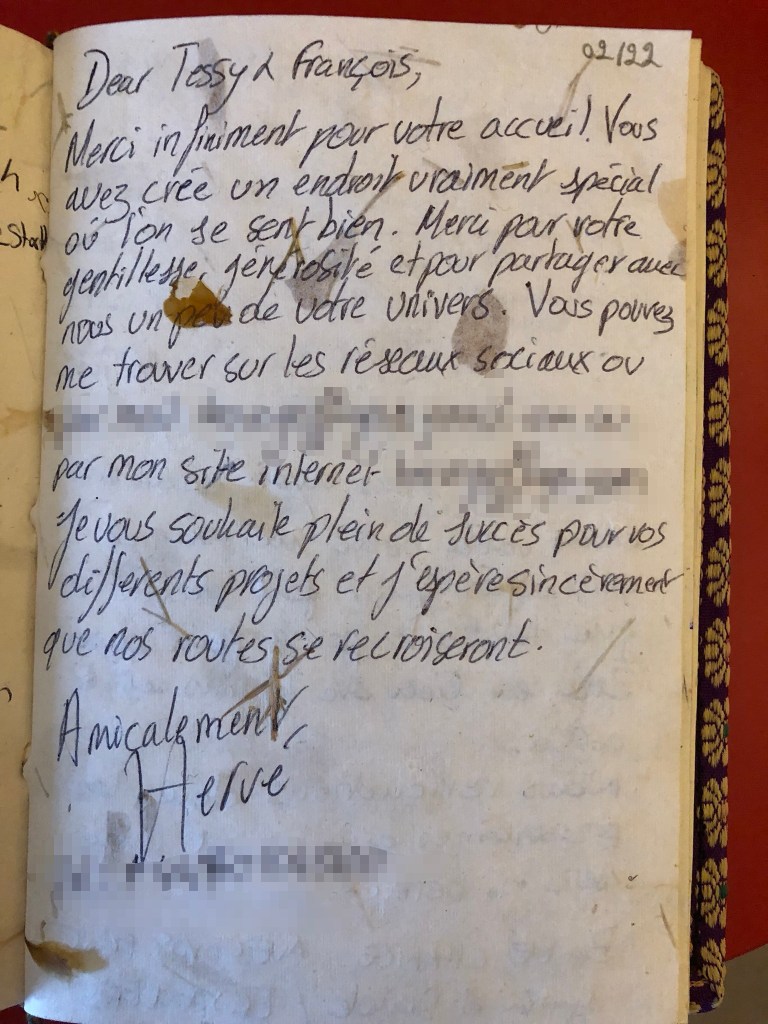 02/22
Dear Tessy & François,
Merci infiniment pour votre accueil. Vous
avez créé un endroit vraiment spécial
où l'on se sent bien. Merci pour votre
gentillesse, générosité et pour partager avec
nous un peu de votre univers. Vous pouvez
me trouver sur les réseaux sociaux ou
par mon site internet
Je vous souhaite plein de succès pour vos
différents projets et j'espère sincèrement
que nos routes se recroiseront.
Amicalement,
Herve